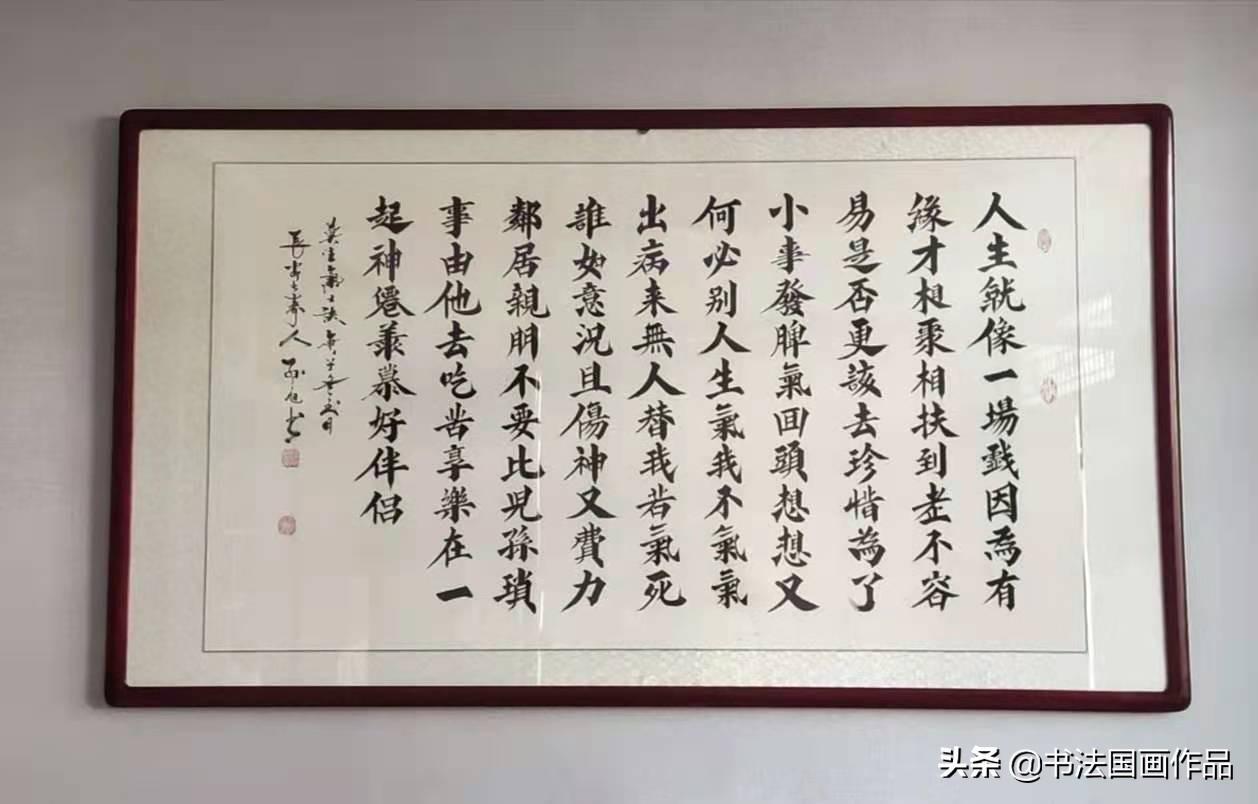 人生就像一場戲因為有
緣才相聚相扶到老不容
易是否更該去珍惜為了
小事發脾氣回頭想想又
何必别人生氣我不氣氣
出病来無人替我若氣死
誰如意況且傷神又費力
鄰居親朋不要比兒孫瑣
事由他去吃苦享樂在一
起神僊羨慕好伴侣
莫生氣
人
头条 @书法国画作品